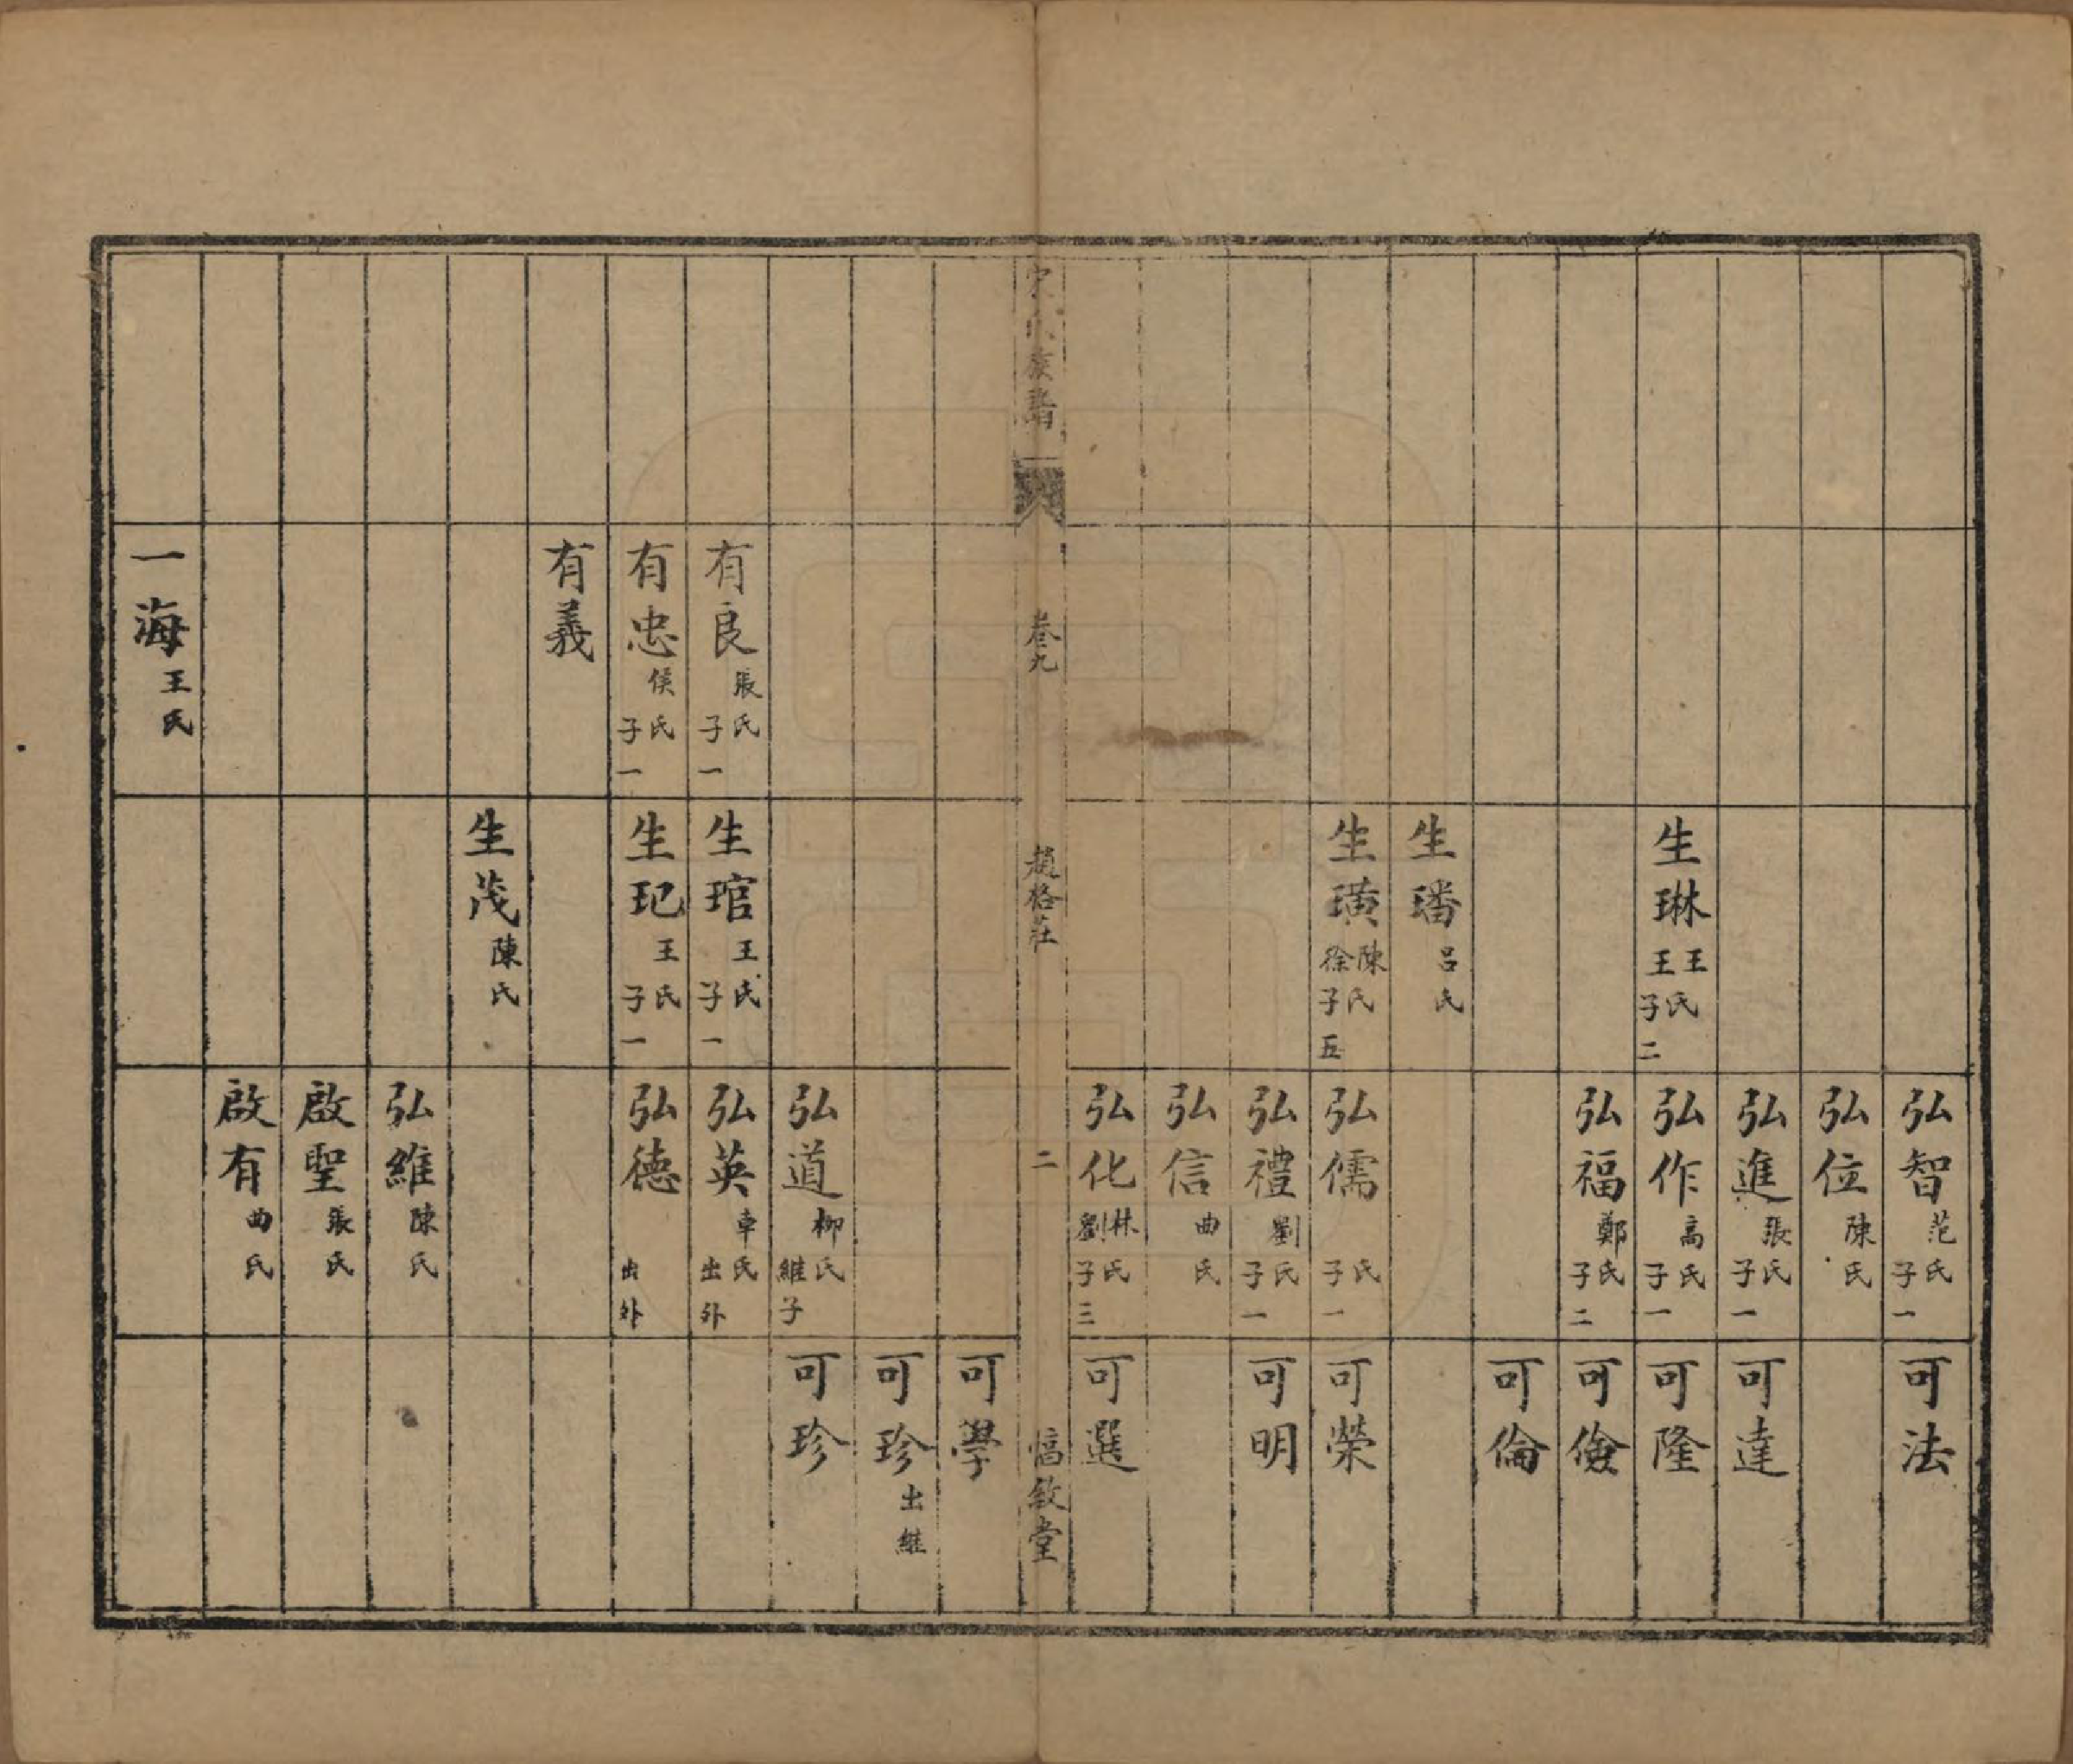 弘智 范氏 子一
可法
弘位 陳氏
弘進 張氏 子一
可達
生琳 王王氏 子二
弘作 高氏 子一
可隆
弘福 鄭氏 子二
可儉
可倫
生璠 呂氏
生璜 陳徐氏 子五
弘儒 氏 子一
可榮
弘禮 劉氏 子一
可明
弘信 曲氏
弘化 林劉氏 子三
可選
氏族譜
卷九
趙格莊
二
敘堂
可學
可珍 出繼
弘道 柳氏 繼子
可珍
有良 張氏 子一
生琯 王氏 子一
弘英 車氏 出外
有忠 侯氏 子一
生玘 王氏 子一
弘德 出外
有義
生茂 陳氏
弘維 陳氏
啟聖 張氏
啟有 曲氏
一海 王氏